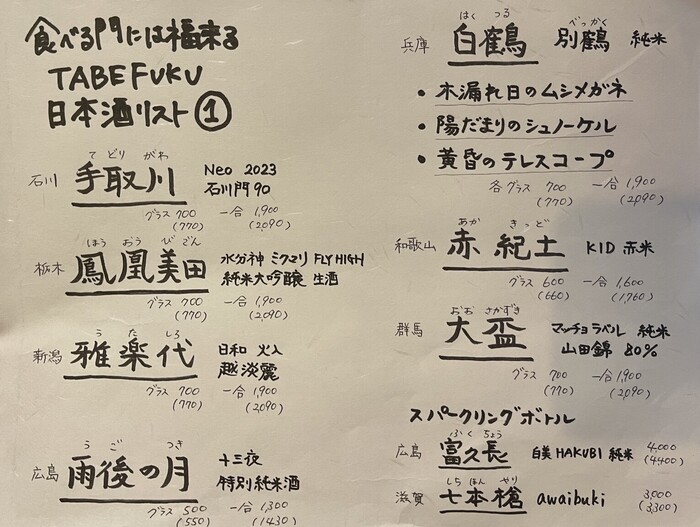 食べる門には福来る
TABEFUKU
日本酒リスト①
てどりがわ
石川 手取川 Neo 2023
石川門90
グラス 700 一合 1,900
(770) (2,090)
ほうおうびでん
栃木 鳳凰美田 水分神 ミクマリ FLY HIGH
純米大吟醸 生酒
グラス 700 一合 1,900
(770) (2,090)
うたしろ
新潟 雅楽代 日和 火入
越淡麗
グラス 700 一合 1,900
(770) (2,090)
うごつき
広島 雨後の月 十三夜
特別純米酒
グラス 500 一合 1,300
(550) (1430)
はくつる べっかく
兵庫 白鶴 別鶴 純米
・木漏れ日のムシメガネ
・陽だまりのシュノーケル
・黄昏のテレスコープ
各グラス 700 一合 1,900
(770) (2,090)
あか きっど
和歌山 赤紀土 KID 赤米
グラス 600 一合 1,600
(660) (1,760)
おおさかずき
群馬 大盃 マッチョラベル 純米
山田錦 80%
グラス 700 一合 1,900
(770) (2,090)
スパークリングボトル
ふくちょう
広島 富久長 白美 HAKUBI 純米 4,000
(4400)
しちほんやり
滋賀 七本槍 awaibuki 3,000
(3,300)